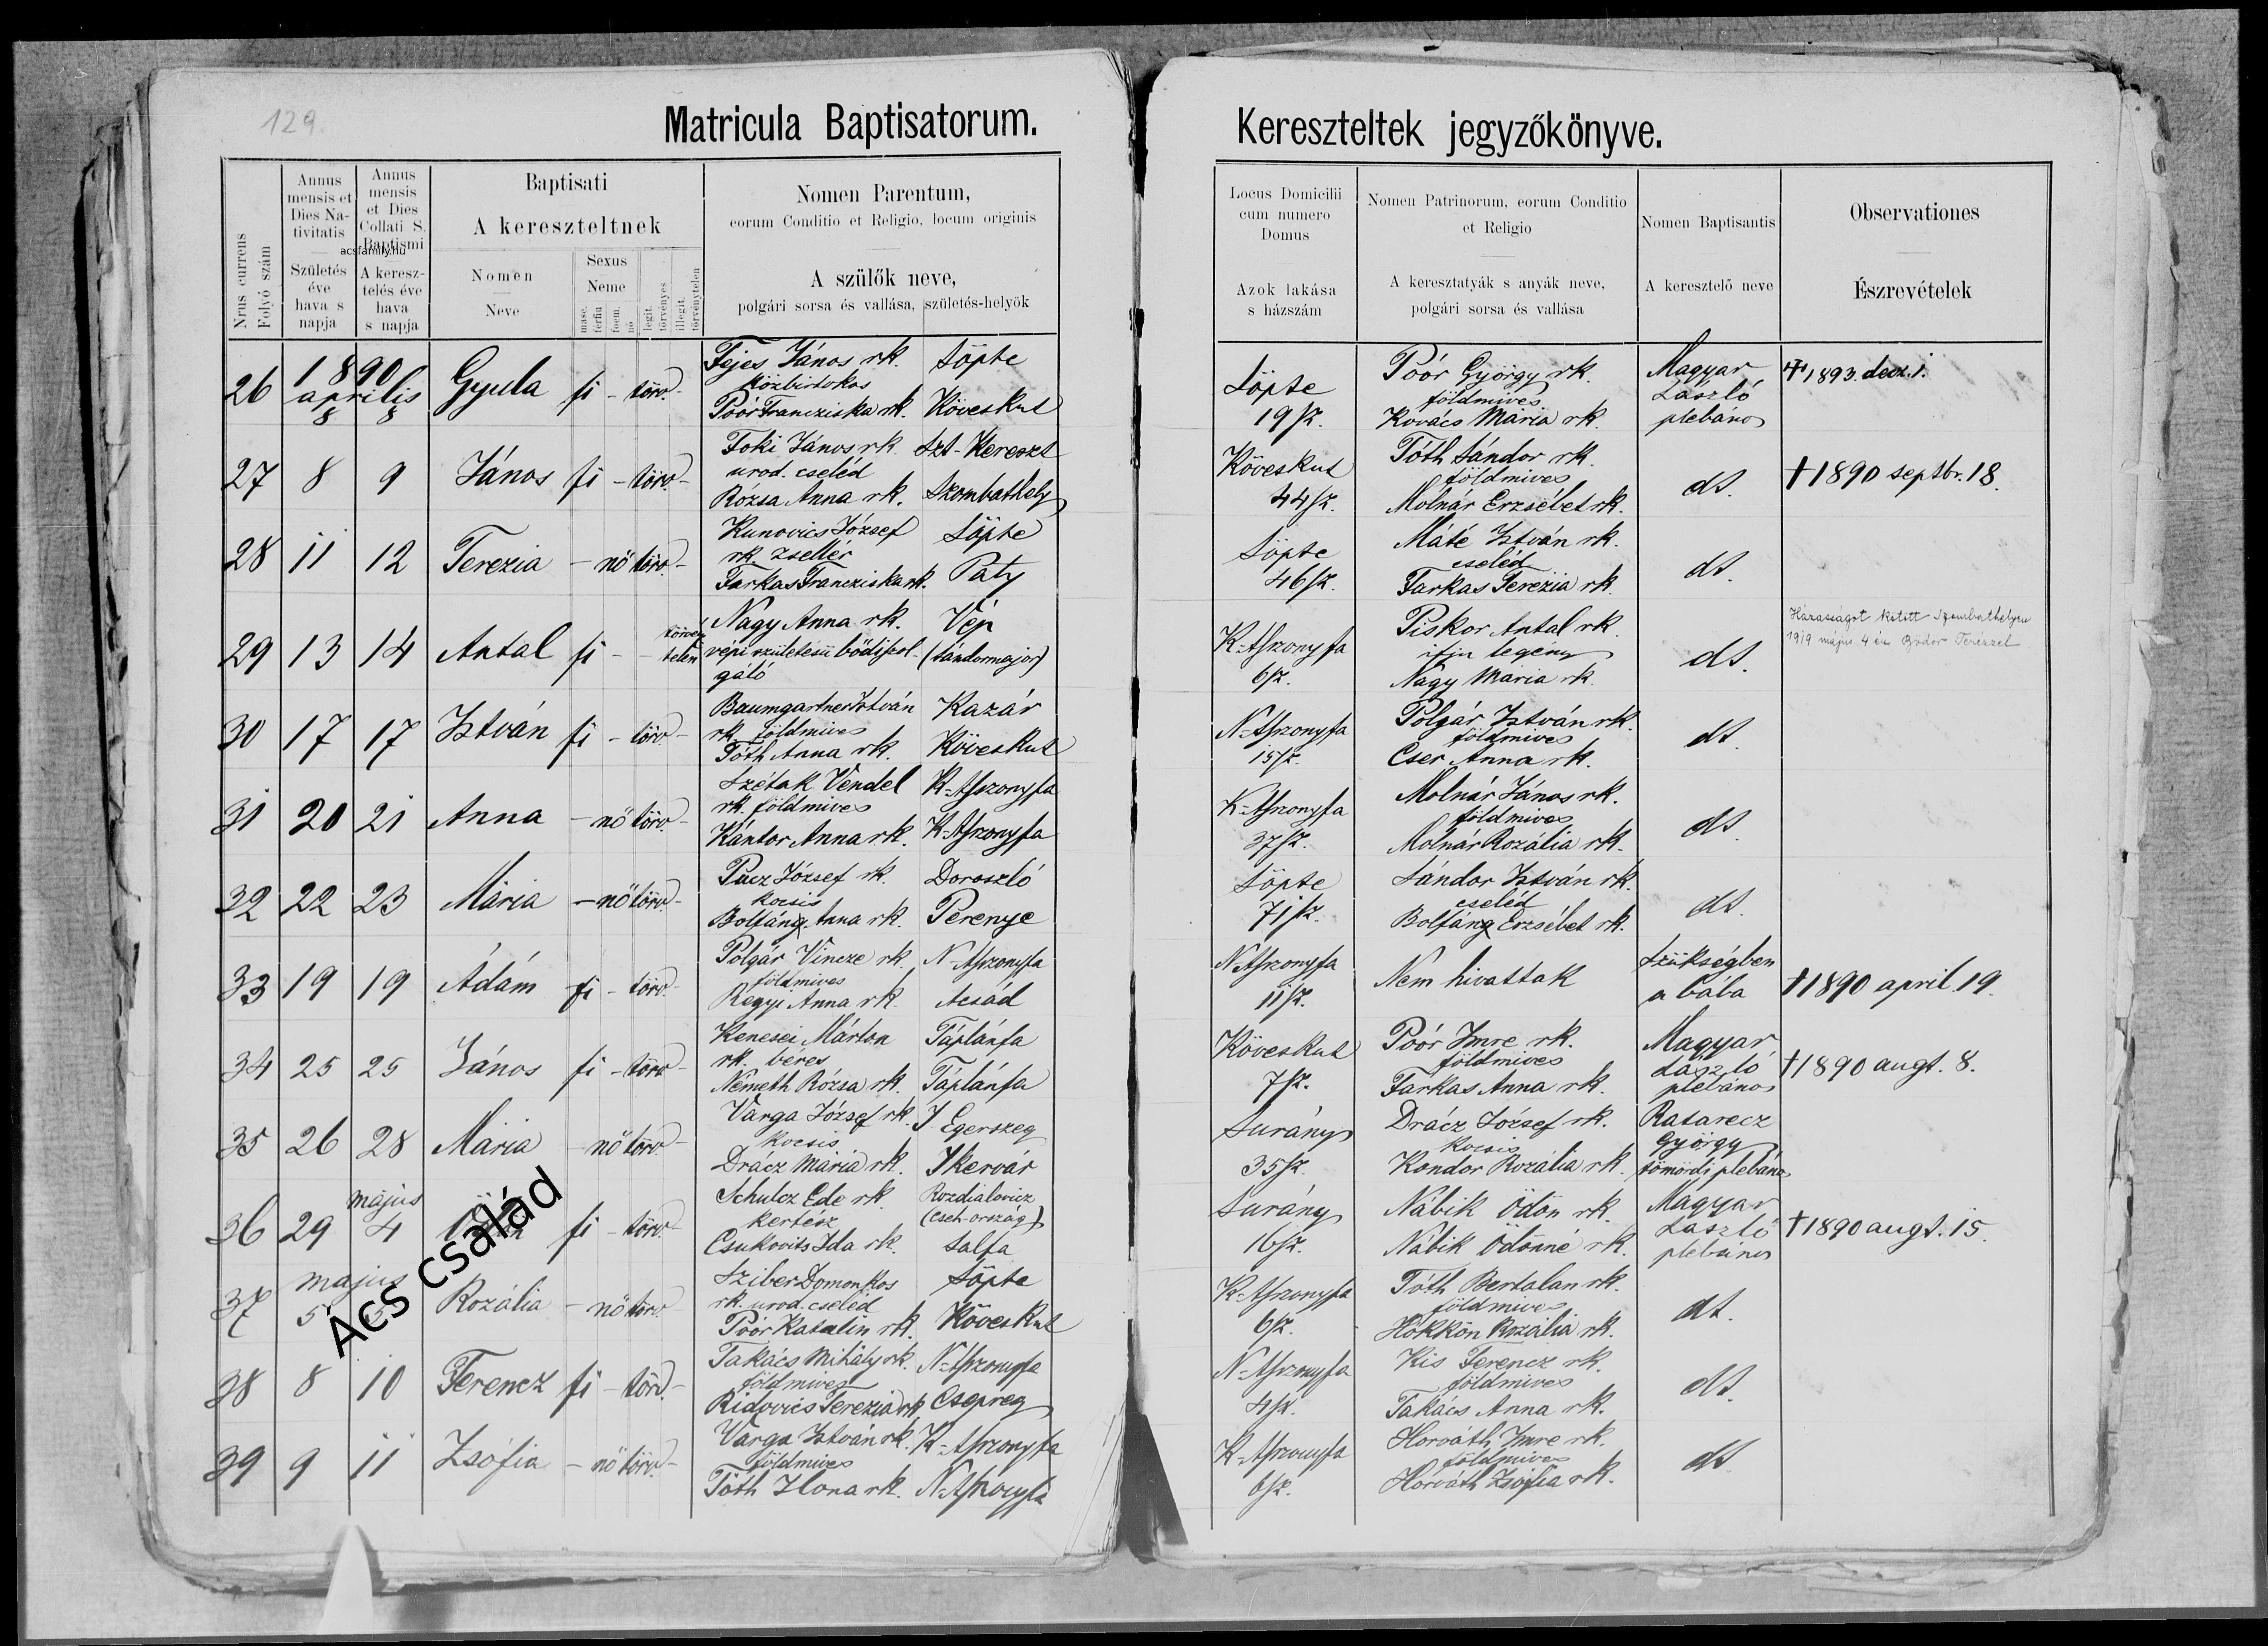 129.
Matricula Baptisatorum.
Kereszteltek jegyzőkönyve.
Nrus currens
Folyó szám
Annus
mensis et
Dies Na-
tivitatis
Születés
éve
hava s
napja
Annus
mensis
et Dies
Collati S.
Baptismi
acsfamily.hu
A keresz-
telés éve
hava
s napja
Baptisati
A kereszteltnek
Nomen
Neve
Sexus
Neme
masc.
ferfiu
foem.
nő
legit.
törvényes
illegit.
törvénytelen
Nomen Parentum,
eorum Conditio et Religio, locum originis
A szülők neve,
polgári sorsa és vallása, születés-helyök
Locus Domicilii
cum numero
Domus
Azok lakása
s házszám
Nomen Patrinorum, eorum Conditio
et Religio
A keresztatyák s anyák neve,
polgári sorsa és vallása
Nomen Baptisantis
A keresztelő neve
Observationes
Észrevételek
1890
április
26 8 8 Gyula fi - törv. -
Fejes János rk. Söpte
közbirtokos
Poór Francziska rk. Köveskut
Söpte
19 sz.
Poór György rk.
földmives
Kovács Mária rk.
Magyar
László
plebános
† 1893. decz. 1.
27 8 9 János fi - törv. -
Foki János rk. Szt-Kereszt
urod. cseléd
Rózsa Anna rk. Szombathely
Köveskut
44 sz.
Tóth Sándor rk.
földmives
Molnár Erzsébet rk.
dt.
† 1890 septbr. 18.
28 11 12 Terezia - nő törv. -
Kunovics József Söpte
rk. zsellér
Farkas Francziska rk. Paty
Söpte
46 sz.
Máté István rk.
cseléd
Farkas Terezia rk.
dt.
29 13 14 Antal fi - - törvény
telen
Nagy Anna rk. Vép
vépi születésü bödi szol- (Sándormajor)
gáló
K-Asszonyfa
6 sz.
Piskor Antal rk.
ifju legény
Nagy Mária rk.
dt.
Házasságot kötött Szombathelyen
1919 május 4 én Bödor Terézzel
30 17 17 István fi - törv. -
Baumgartner István Kazár
rk. földmives
Tóth Anna rk. Köveskut
N-Asszonyfa
15 sz.
Polgár István rk.
földmives
Cser Anna rk.
dt.
31 20 21 Anna - nő törv. -
Szétak Vendel K-Asszonyfa
rk. földmives
Kántor Anna rk. K-Asszonyfa
K-Asszonyfa
37 sz.
Molnár János rk.
földmives
Molnár Rozália rk.
dt.
32 22 23 Mária - nő törv. -
Pucz József rk. Doroszló
kocsis
Bolfáng Anna rk. Perenye
Söpte
71 sz.
Sándor István rk.
cseléd
Bolfáng Erzsébet rk.
dt.
33 19 19 Ádám fi - törv. -
Polgár Vincze rk. N-Asszonyfa
földmives
Regyi Anna rk. Acsád
N-Asszonyfa
11 sz.
Nem hivattak
Szükségben
a bába
† 1890 april. 19.
34 25 25 János fi - törv. -
Kenesei Márton Táplánfa
rk. béres
Németh Rózsa rk. Táplánfa
Köveskut
7 sz.
Poór Imre rk.
földmives
Farkas Anna rk.
Magyar
László
plébános
† 1890 augt. 8.
35 26 28 Mária - nő törv. -
Varga József rk. J Egerszeg
kocsis
Drácz Mária rk. Ikervár
Surány
35 sz.
Drácz József rk.
kocsis
Kondor Rozália rk.
Ratarecz
György
tömördi plebános
36 29 május
4 fi - törv. -
Schulcz Ede rk. Rozdialovicz
kertész (Cseh-ország)
Csukovits Ida rk. Salfa
Surány
16 sz.
Nábik Ödön rk.
Nábik Ödönné rk.
Magyar
László
plebános
† 1890 augt. 15.
május
37 5 5 Rozália - nő törv.
Sziber Domonkos Söpte
rk. urod. cseléd
Poór Katalin rk. Köveskut
K-Asszonyfa
6 sz.
Tóth Bertalan rk.
földmives
Hökkön Rozália rk.
dt.
38 8 10 Ferencz fi - törv. -
Takács Mihály rk. N-Asszonyfa
földmives
Ridovics Terezia rk Csepreg
N-Asszonyfa
4 sz.
Kis Ferencz rk.
földmives
Takács Anna rk.
dt.
39 9 11 Zsófia - nő törv. -
Varga István rk. K-Asszonyfa
földmives
Tóth Ilona rk. N-Asszonyfa
K-Asszonyfa
6 sz.
Horváth Imre rk.
földmives
Horváth Zsófia rk.
dt.
Ács család